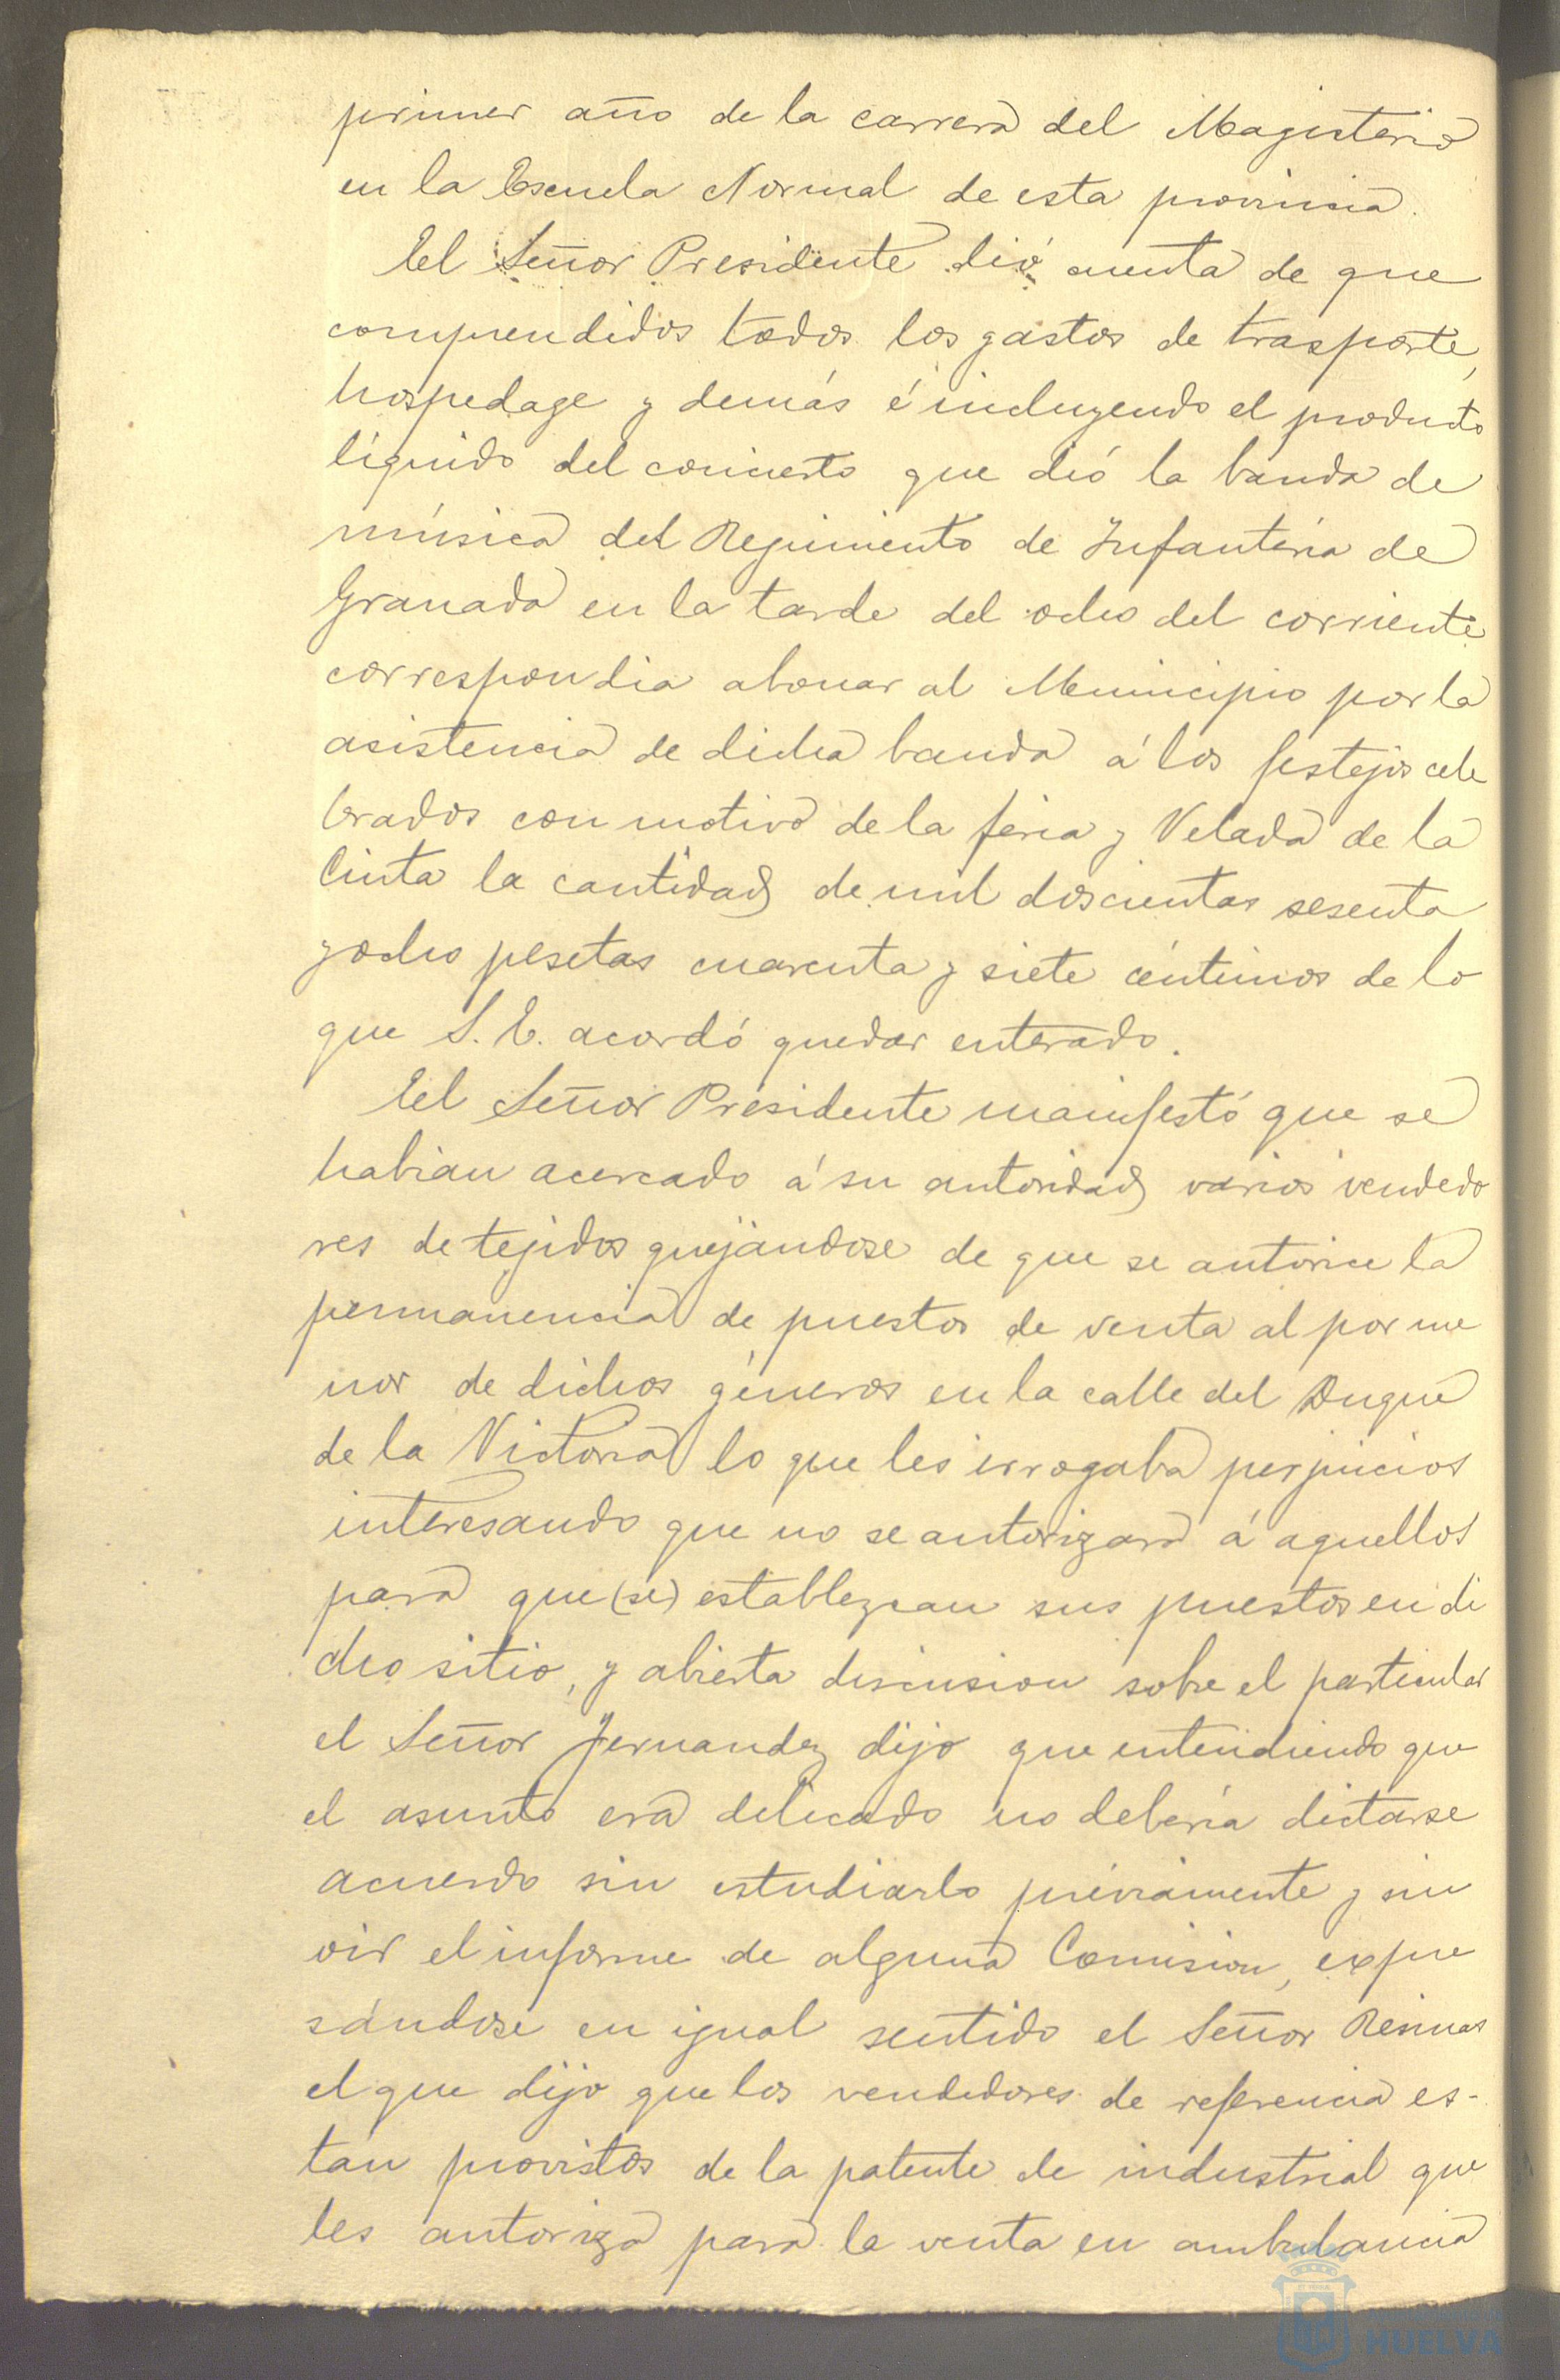 primer año de la carrera del Magisterio
en la Escuela Normal de esta provincia.
El Señor Presidente dió cuenta de que
comprendidos todos los gastos de trasporte,
hospedage y demás é incluyendo el producto
líquido del concierto que dió la banda de
música del Regimiento de Infantería de
Granada en la tarde del ocho del corriente
correspondia abonar al Municipio por la
asistencia de dicha banda á los festejos cele
brados con motivo de la feria y Velada de la
Cinta la cantidad de mil doscientas sesenta
y ocho pesetas cuarenta y siete céntimos de lo
que S. E. acordó quedar enterado.
El Señor Presidente manifestó que se
habian acercado á su autoridad varios vendedo
res de tejidos quejándose de que se autorice la
permanencia de puestos de venta al por me
nor de dichos géneros en la calle del Duque
de la Victoria lo que les irrogaba perjuicios
interesando que no se autorizara á aquellos
para que (se) establezcan sus puestos en di
cho sitio, y abierta discusion sobre el particular
el Señor Fernandez dijo que entendiendo que
el asunto era delicado no debería dictarse
acuerdo sin estudiarlo préviamente y sin
oir el informe de alguna Comision, expre
sándose en igual sentido el Señor
el que dijo que los vendedores de referencia es-
tan provistos de la patente de industrial que
les autoriza para la venta en ambulancia
HUELVA